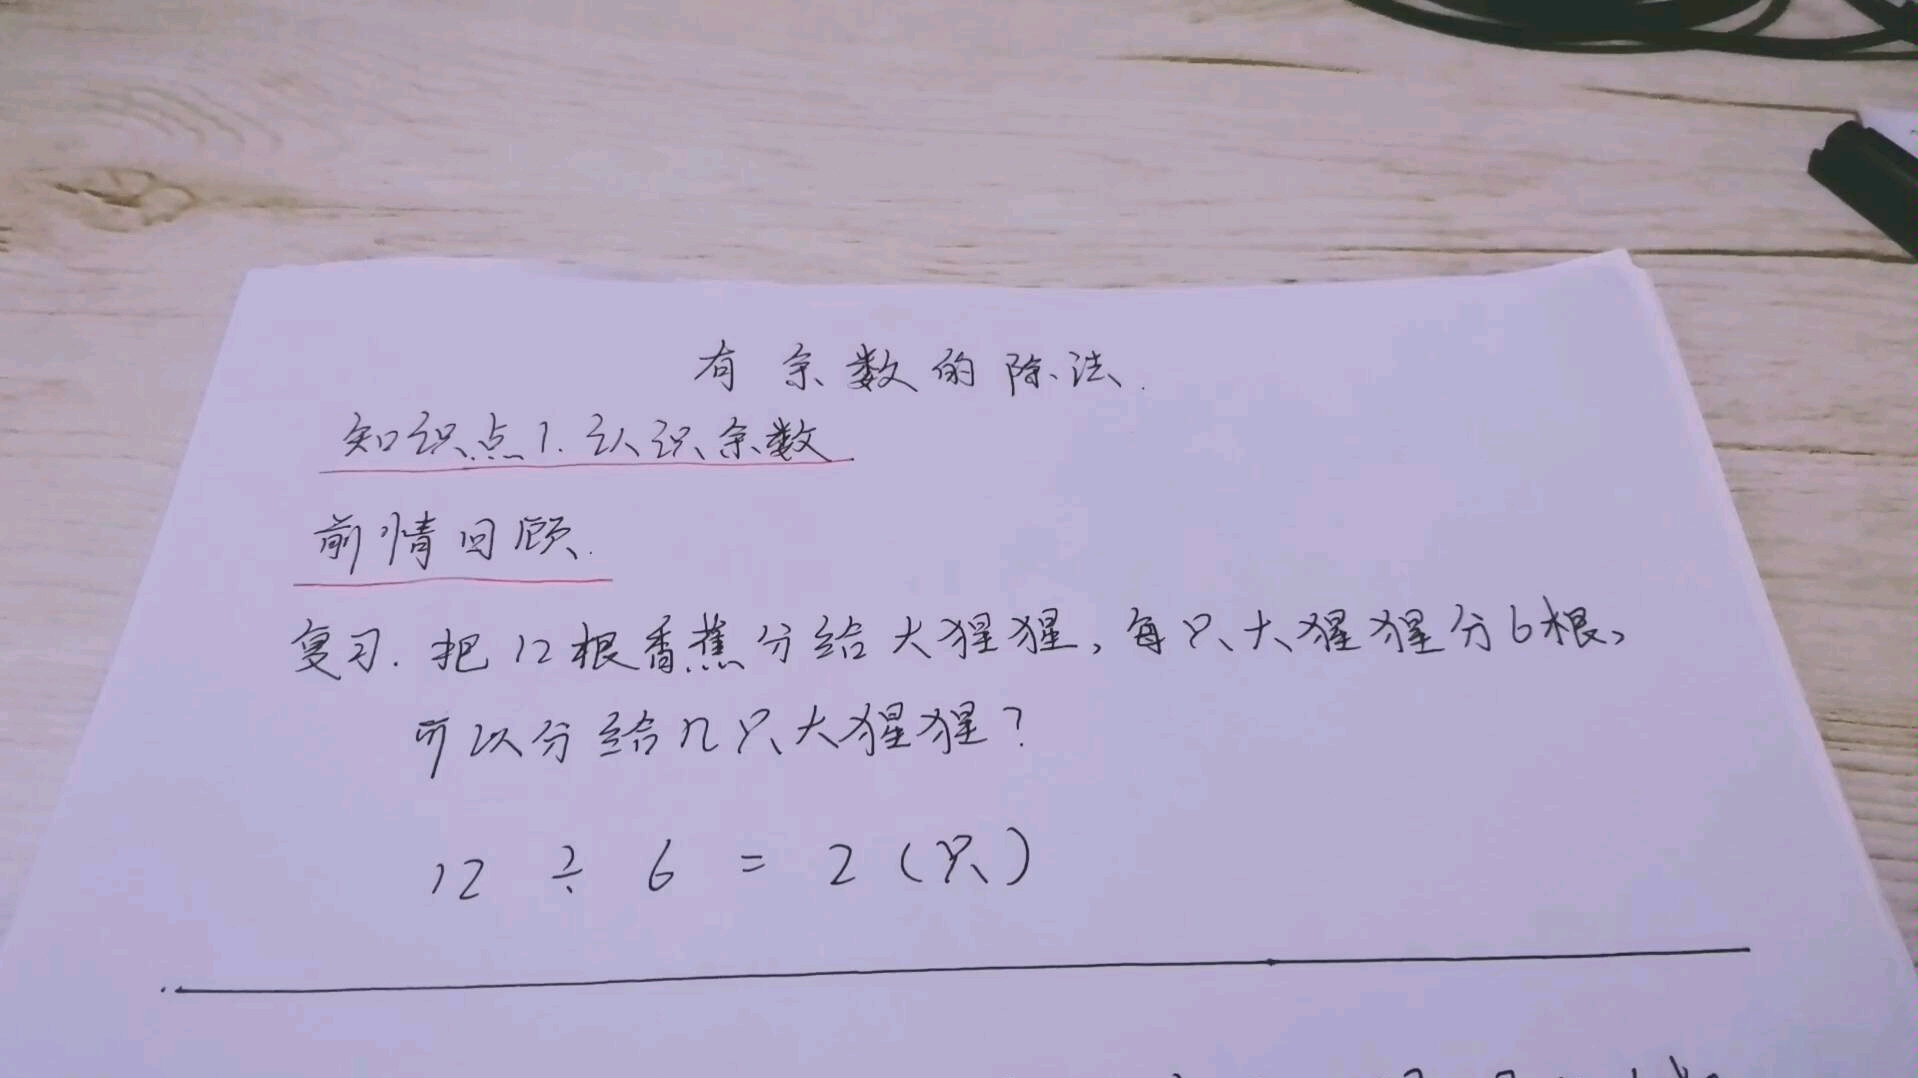 有余数的除法.
知识点1.认识余数
前情回顾.
复习.把12根香蕉分给大猩猩,每只大猩猩分6根,
可以分给几只大猩猩?
12÷6=2(只)